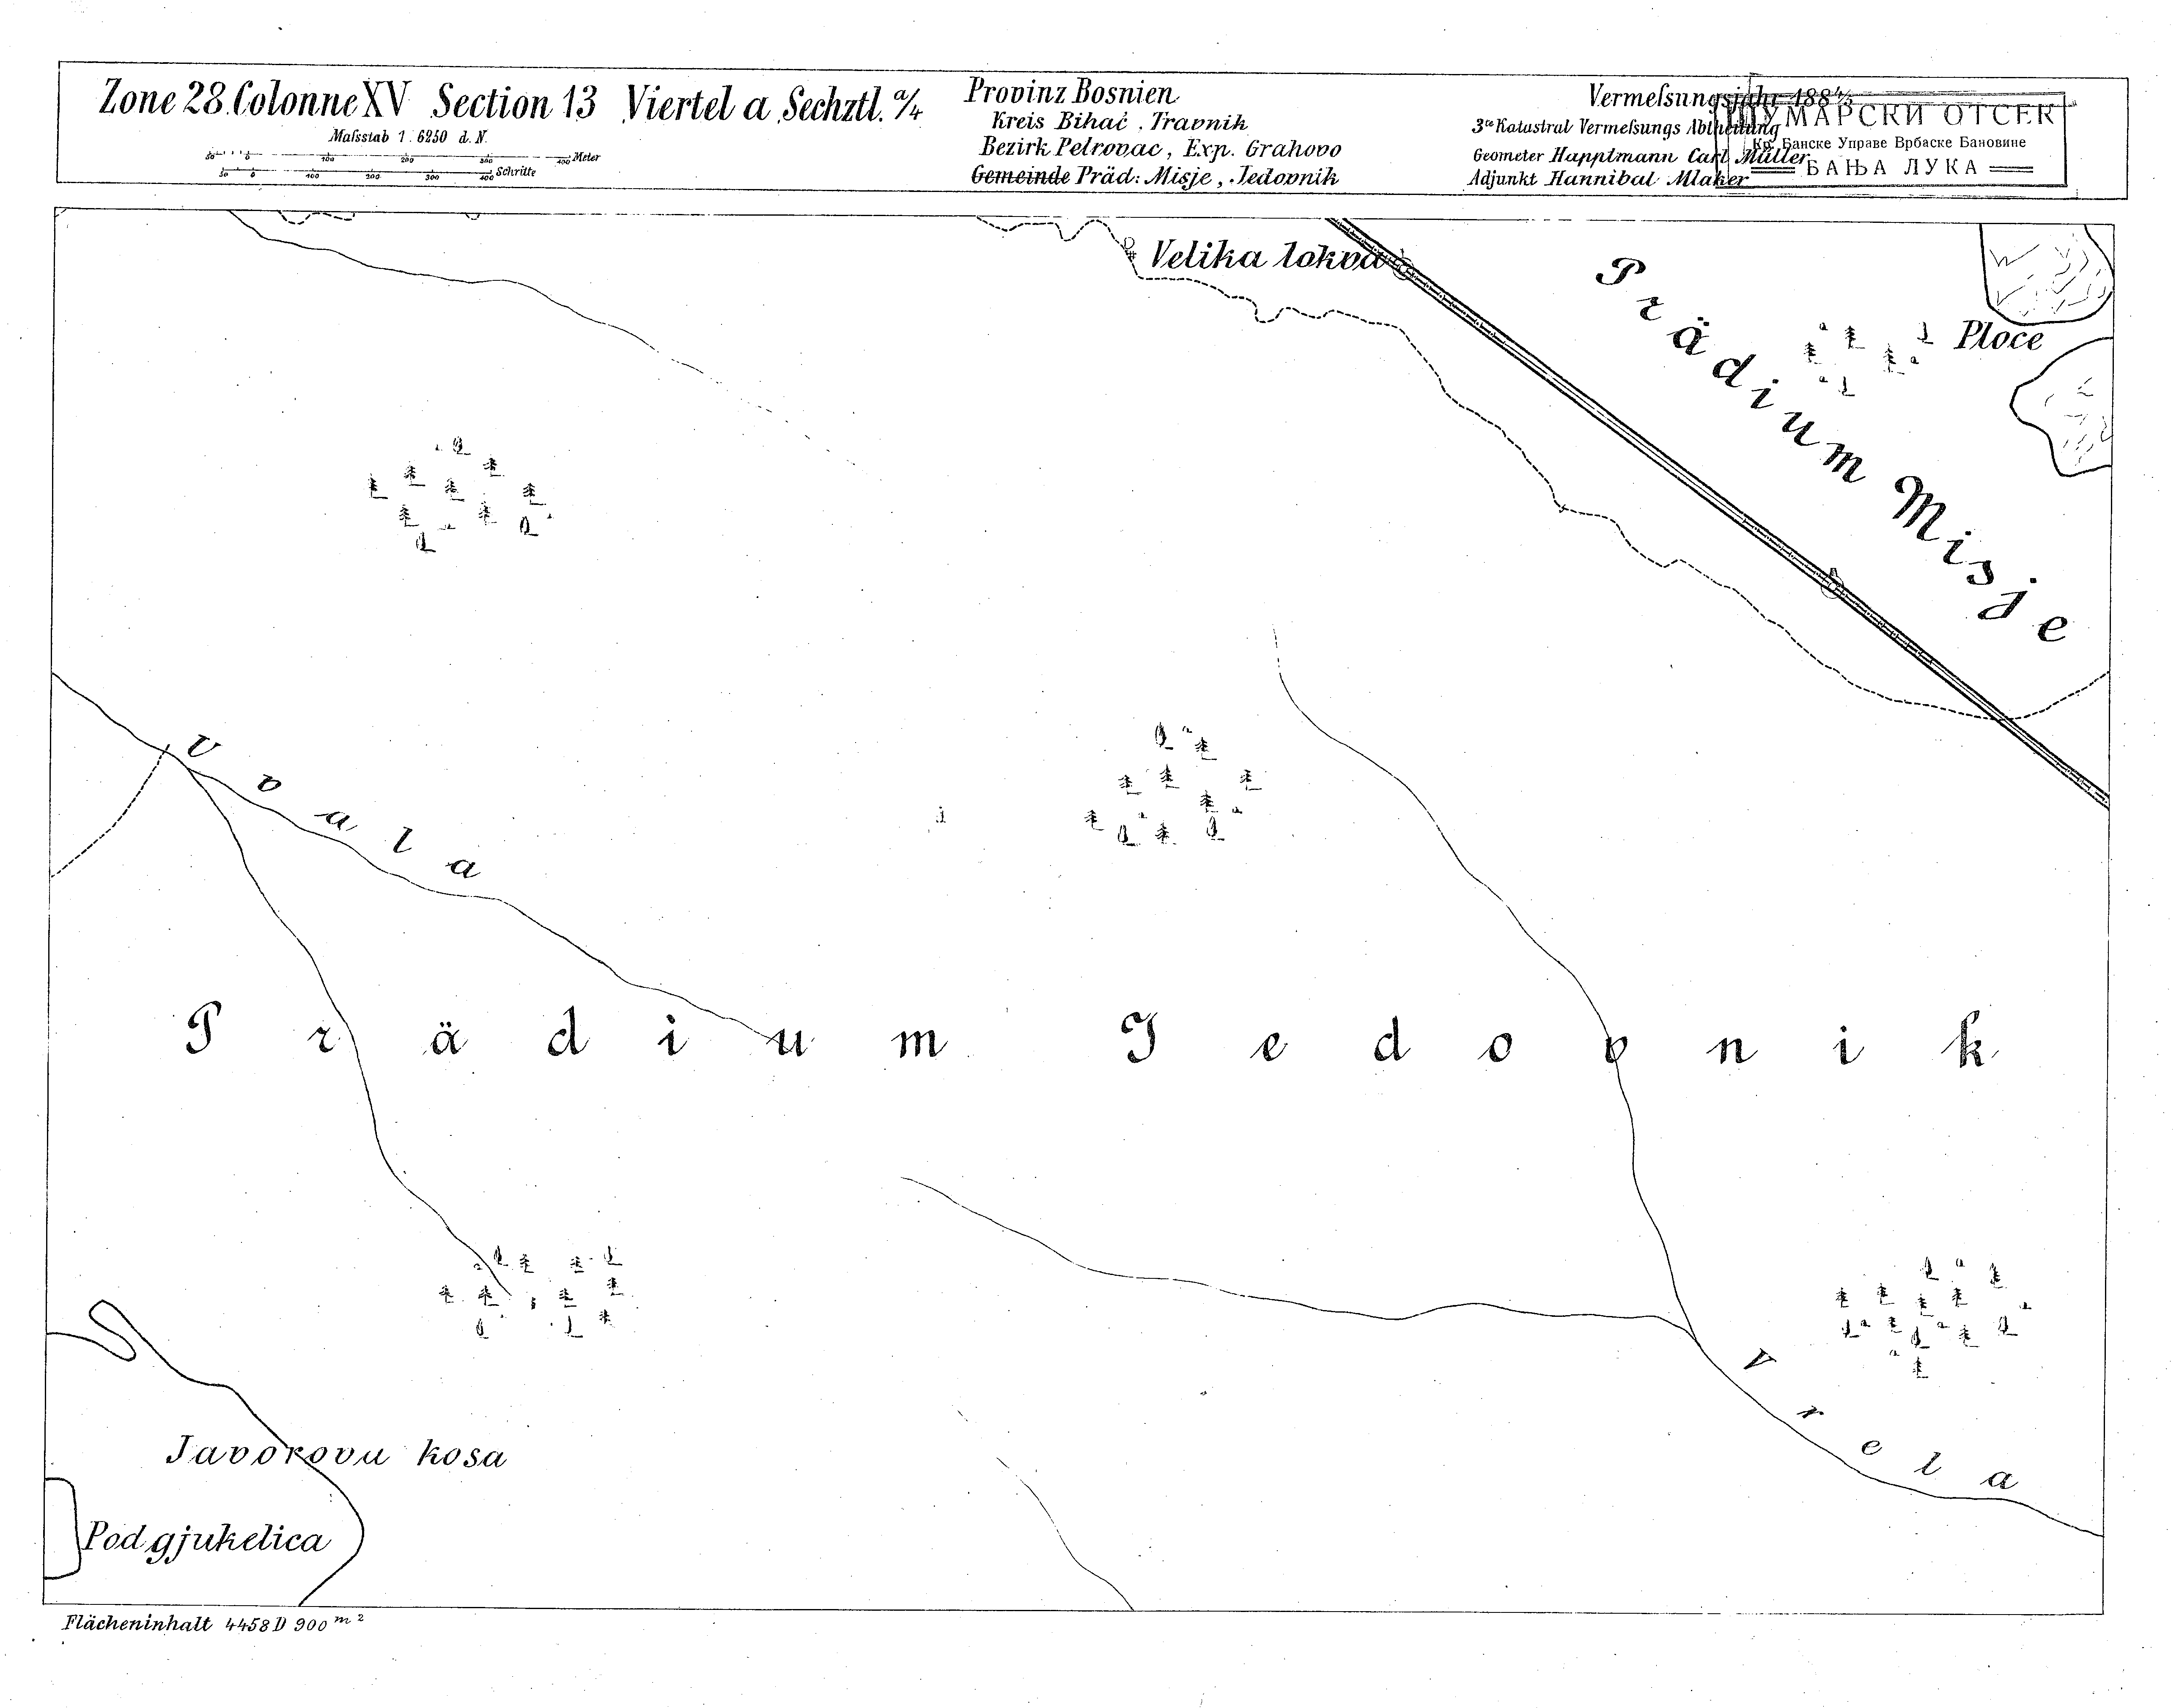 Zone 28. Colonne XV Section 13 Viertel a Sechztl. a/4
Maſsstab 1 : 6250 d. N.
50 0 100 200 300 400 Meter
50 0 100 200 300 400 Schritte
Provinz Bosnien
Kreis Bihać, Travnik
Bezirk Petrovac, Exp. Grahovo
Gemeinde Präd: Misje, Jedovnik
Vermeſsungsjahr 188
3te Katastral Vermeſsungs Abtheilung
Geometer Hauptmann Carl Müller
Adjunkt Hannibal Mlaker
ШУМАРСКИ ОТСЕК
Кр. Банске Управе Врбаске Бановине
БАЊА ЛУКА
Velika lokva
Prädium Misje
Ploce
Uvala
Prädium Jedovnik
Vrela
Javorova kosa
Pod gjukelica
Flächeninhalt 4458 D 900 m²